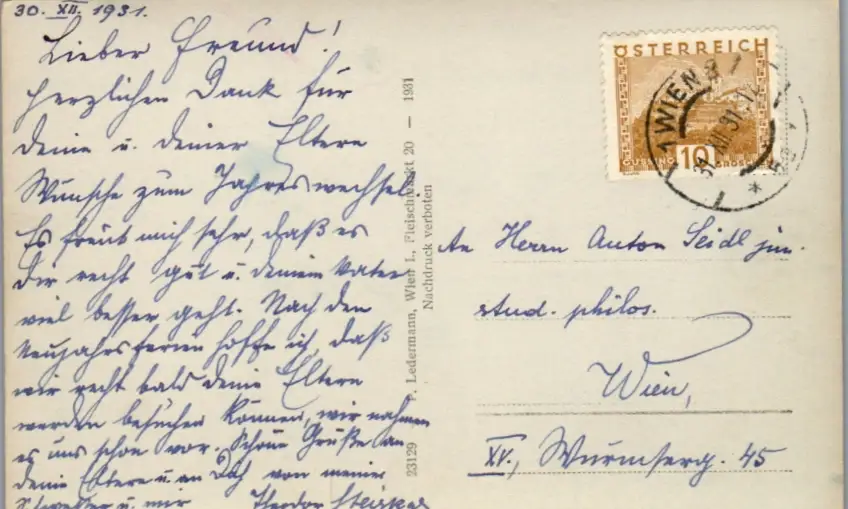 30. XII. 1931.
Lieber Freund!
Herzlichen Dank für
deine u. deiner Eltern
Wünsche zum Jahreswechsel.
Es freut mich sehr, daß es
dir recht gut u. deinem Vater
viel besser geht. Nach den
Neujahrsferien hoffe ich, daß
wir recht bald deine Eltern
werden besuchen können, wir nahmen
es uns schon vor. Schöne Grüße an
deine Eltern u. an Dich von meiner
Schwester u. mir Theodor
23129 P. Ledermann, Wien I., Fleischmarkt 20 — 1931
Nachdruck verboten
ÖSTERREICH
10
GROSCHEN
WIEN
31. XII. 31
An Herrn Anton Seidl jun.
stud. philos.
Wien,
XV., Wurmserg. 45